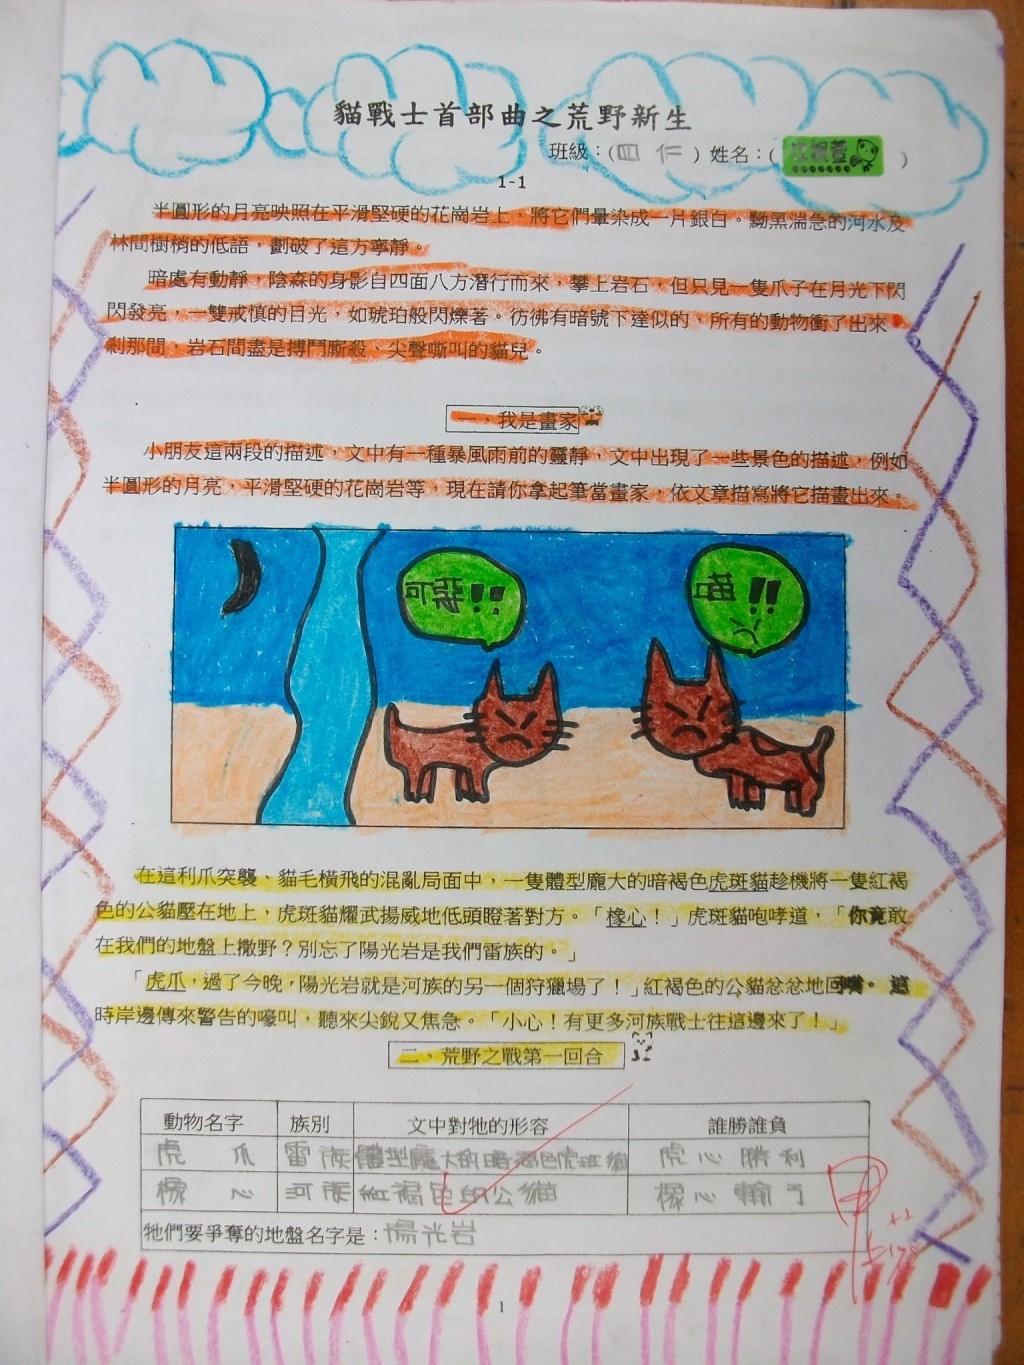 貓戰士首部曲之荒野新生
班級：(四 仁) 姓名：( )
1-1
半圓形的月亮映照在平滑堅硬的花崗岩上，將它們暈染成一片銀白。黝黑湍急的河水及
林間樹梢的低語，劃破了這方寧靜。
暗處有動靜，陰森的身影自四面八方潛行而來，攀上岩石，但只見一隻爪子在月光下閃
閃發亮，一雙戒慎的目光，如琥珀般閃爍著。彷彿有暗號下達似的，所有的動物衝了出來
剎那間，岩石間盡是搏鬥廝殺、尖聲嘶叫的貓兒。
一、我是畫家
小朋友這兩段的描述，文中有一種暴風雨前的靈靜，文中出現了一些景色的描述，例如
半圓形的月亮，平滑堅硬的花崗岩等，現在請你拿起筆當畫家，依文章描寫將它描畫出來。
可惡!!
喵!!
在這利爪突襲、貓毛橫飛的混亂局面中，一隻體型龐大的暗褐色虎斑貓趁機將一隻紅褐
色的公貓壓在地上，虎斑貓耀武揚威地低頭瞪著對方。「橡心！」虎斑貓咆哮道，「你竟敢
在我們的地盤上撒野？別忘了陽光岩是我們雷族的。」
「虎爪，過了今晚，陽光岩就是河族的另一個狩獵場了！」紅褐色的公貓忿忿地回嘴。這
時岸邊傳來警告的嚎叫，聽來尖銳又焦急。「小心！有更多河族戰士往這邊來了！」
二、荒野之戰第一回合
動物名字 族別 文中對牠的形容 誰勝誰負
虎 爪 雷族 體型龐大的暗褐色虎斑貓 虎心勝利
橡 心 河族 紅褐色的公貓 橡心輸了
牠們要爭奪的地盤名字是：陽光岩
1